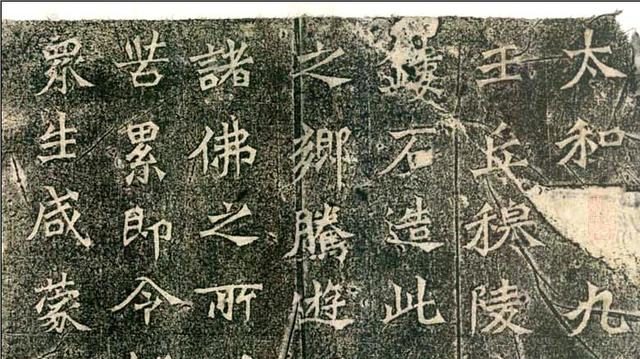 太和九
王丘穆陵
鏤石造此
之鄉騰遊
諸佛之所
苦累即令
眾生咸蒙